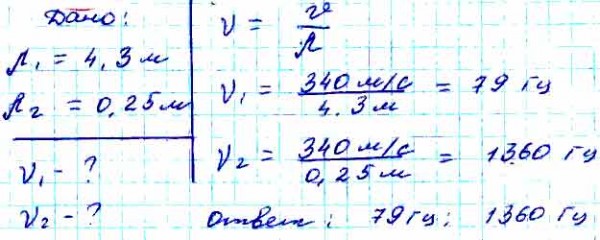 Дано:
λ₁ = 4,3 м
λ₂ = 0,25 м
ν₁ - ?
ν₂ - ?
ν = v/λ
ν₁ = 340 м/с / 4.3 м = 79 Гц
ν₂ = 340 м/с / 0,25 м = 1360 Гц
ответ: 79 Гц; 1360 Гц